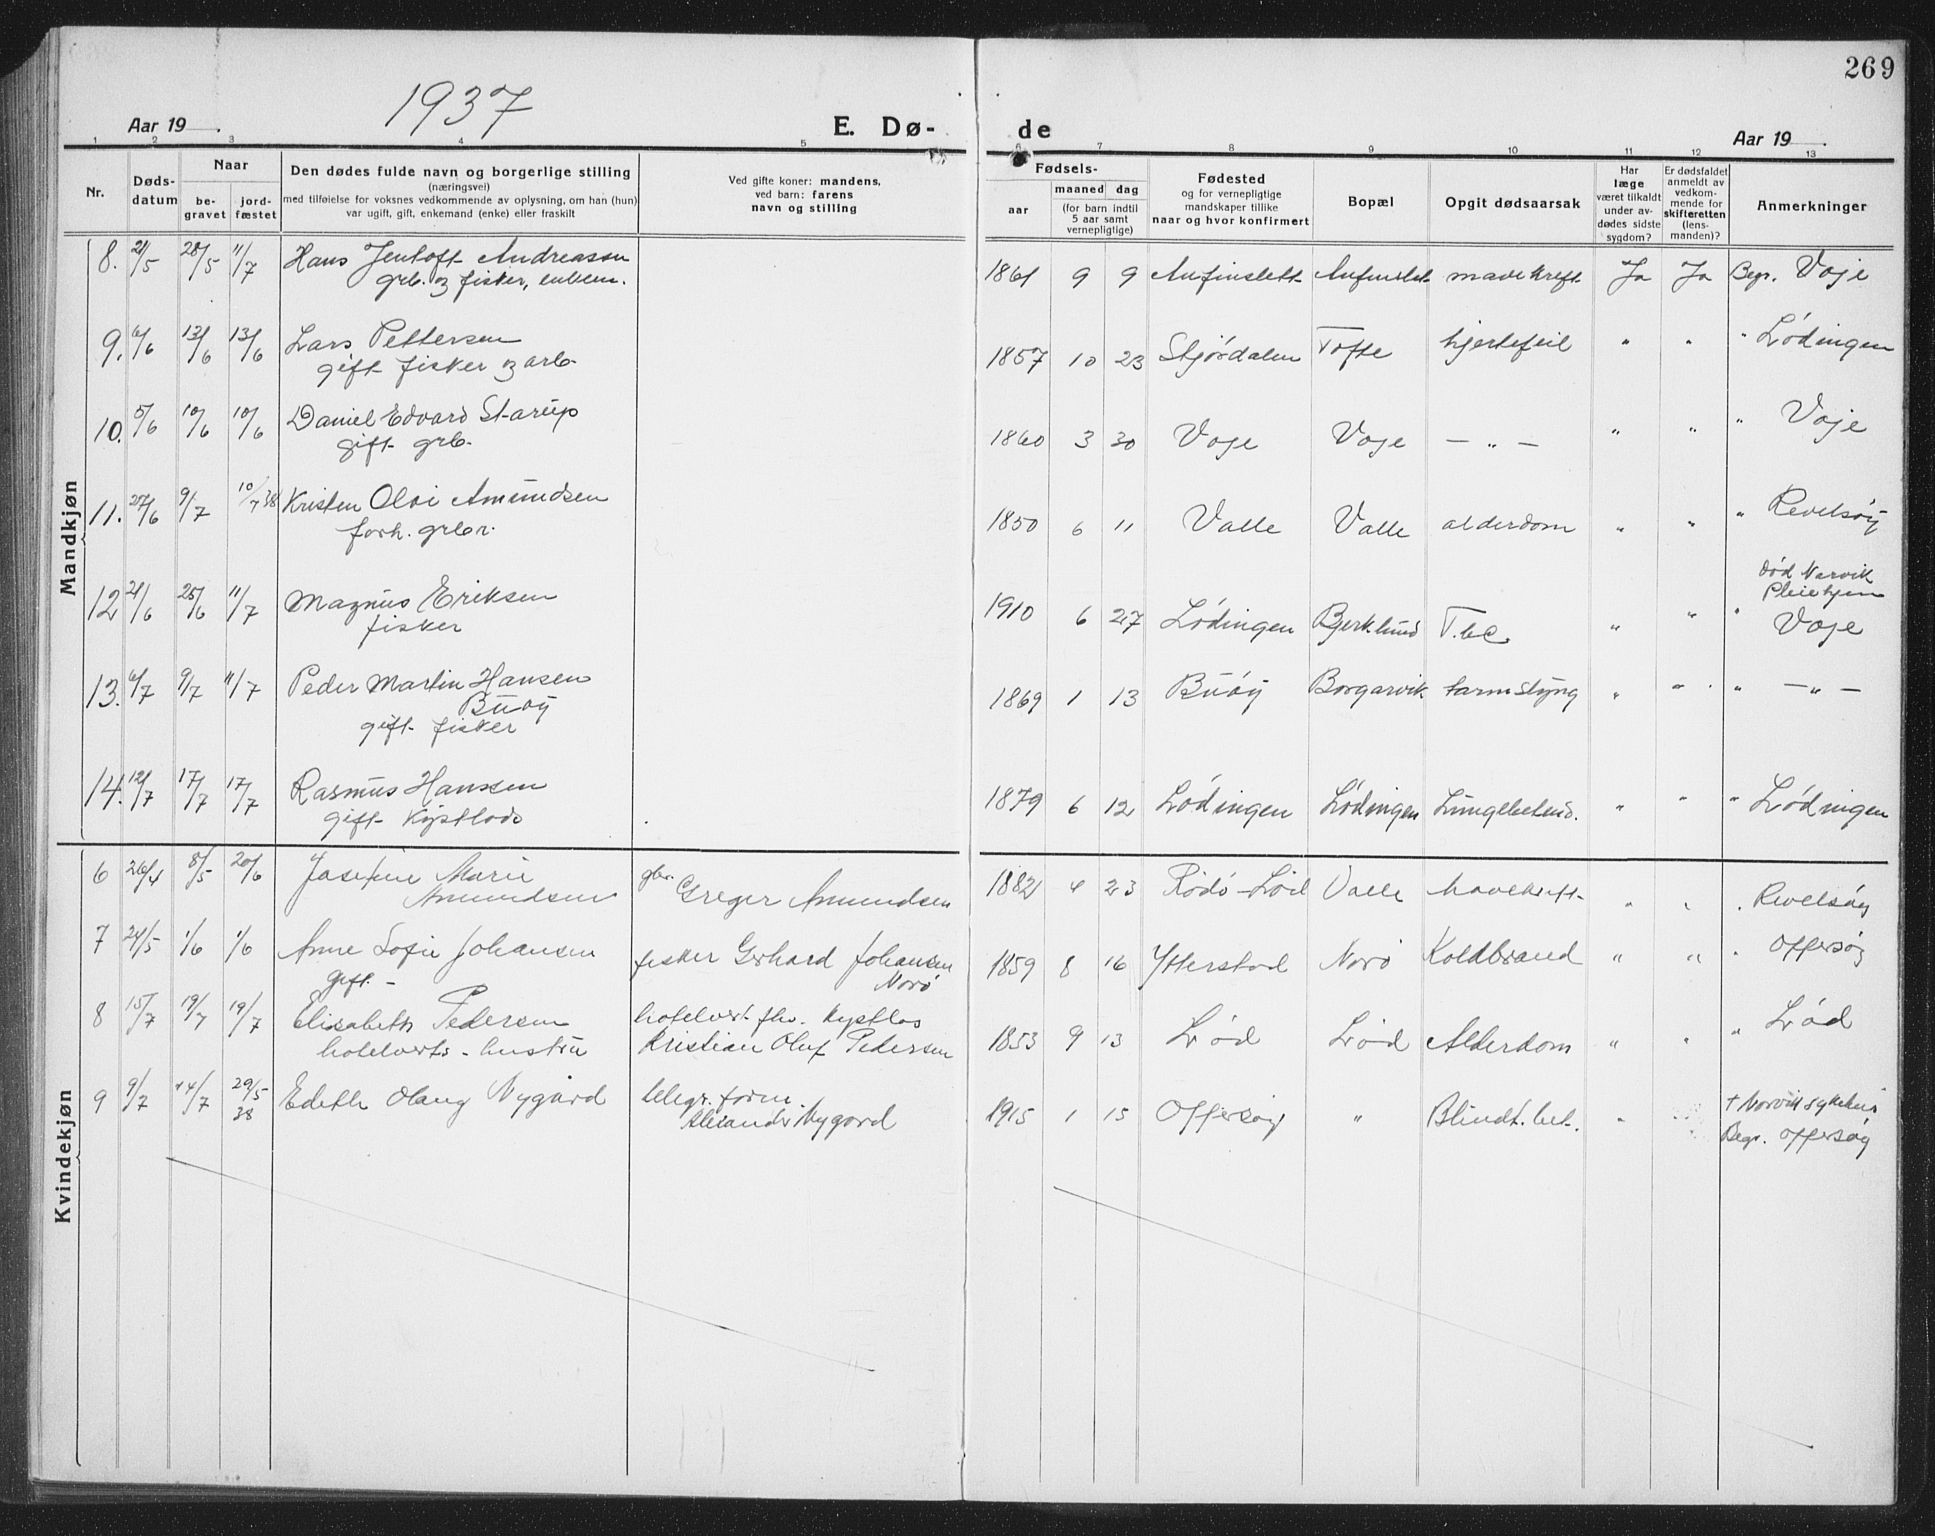 269
1937
Aar 19
E. Dø-
de
Aar 19
1 2 3 4 5 6 7 8 9 10 11 12 13
Nr.
Døds-
datum
Naar
be-
gravet
jord-
fæstet
Den dødes fulde navn og borgerlige stilling
(næringsvei)
med tilføielse for voksnes vedkommende av oplysning, om han (hun)
var ugift, gift, enkemand (enke) eller fraskilt
Ved gifte koner: mandens,
ved barn: farens
navn og stilling
Fødsels-
aar
maaned
dag
(for barn indtil
5 aar samt
vernepligtige)
Fødested
og for vernepligtige
mandskaper tillike
naar og hvor konfirmert
Bopæl
Opgit dødsaarsak
Har
læge
været tilkaldt
under av-
dødes sidste
sygdom?
Er dødsfaldet
anmeldt av
vedkom-
mende for
skifteretten
(lens-
manden)?
Anmerkninger
Mandkjøn
8. 21/5 28/5 11/7 Hans Jentoft Andreassen 1861 9 9 Anfinslett Anfinslet mavekreft Ja Ja Begr. Voje
grb. og fisker, enkem.
9. 6/6 13/6 13/6 Lars Pettersen 1857 10 23 Stjørdalen Tofte hjertefeil " " " Lødingen
gift fisker og arb.
10. 5/6 10/6 10/6 Daniel Edvard Starup 1860 3 30 Voje Voje — " — " " " Voje
gift grb.
11. 27/6 9/7 10/7 38 Kristen Olai Amundsen 1850 6 11 Valle Valle alderdom " " " Revelsøy
forh. grbr.
død Narvik
Pleiehjem
12 21/6 25/6 11/7 Magnus Eriksen 1910 6 27 Lødingen Bjerklund T.bc. " " " Voje
fisker
13. 6/7 9/7 11/7 Peder Martin Hansen 1869 1 13 Buøy Borgarvik tarmslyng " " " — " —
Buøy
gift fisker
14. 12/7 17/7 17/7 Rasmus Hanssen 1879 6 12 Lødingen Lødingen Lungebetend. " " " Lødingen
gift Kystlods
Kvindekjøn
6 26/4 8/5 20/6 Josefine Marie gbr. Greger Amundsen 1882 4 23 Rødø-Lød Valle mavekreft " " " Revelsøy
Amundsen
7 24/5 1/6 1/6 Anne Sofie Johansen fisker Gerhard Johansen 1859 8 16 Ytterstad Norø Koldbrand " " " Offersøy
gift. - Norø
8 15/7 19/7 19/7 Elisabeth Pedersen hotelvert fhv. kystlos 1853 9 13 Lød Lød Alderdom " " " Lød
hotelverts-hustru Kristian Oluf Pedersen
9 9/7 14/7 29/5 38 Edith Olaug Nygård telegr.form. 1915 1 15 Offersøy " Blindt.bet. " + Narvik sykehus
Alexander Nygård Begr. Offersøy